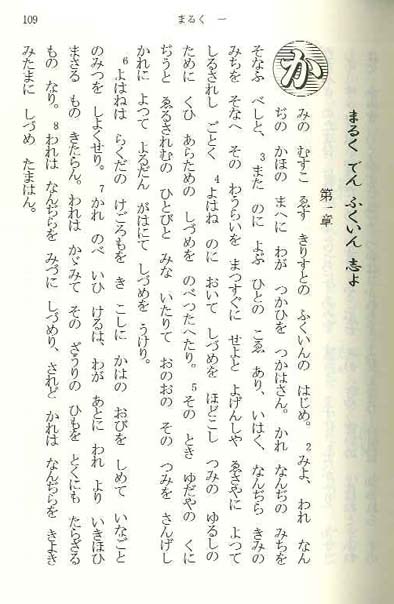 109
まるく 一
まるく でん ふくいん 志よ
第一章
かみの むすこ ゑす きりすとの ふくいんの はじめ。 2みよ、われ なん
ぢの かほの まへに わが つかひを つかはさん。かれ なんぢの みちを
そなふ べしと、 3また のに よぶ ひとの こゑ あり、いはく、なんぢら きみの
みちを そなへ その わうらいを まつすぐに せよと よげんしや ゑさやに よつて
しるされし ごとく 4よはね のに おいて しづめを ほどこし つみの ゆるしの
ために くひ あらための しづめを のべつたへたり。 5その とき ゆだやの くに
ぢうと ゑるされむの ひとびと みな いたりて おのおの その つみを さんげし
かれに よつて よるだん がはにて しづめを うけり。
6よはねは らくだの けごろもを き こしに かはの おびを しめて いなごと
のみつを しよくせり。 7かれ のべ いひ けるは、わが あとに われ より いきほひ
まさる もの きたらん。われは かゞみて その ざうりの ひもを とくにも たらざる
もの なり。 8われは なんぢらを みづに しづめり、されど かれは なんぢらを きよき
みたまに しづめ たまはん。